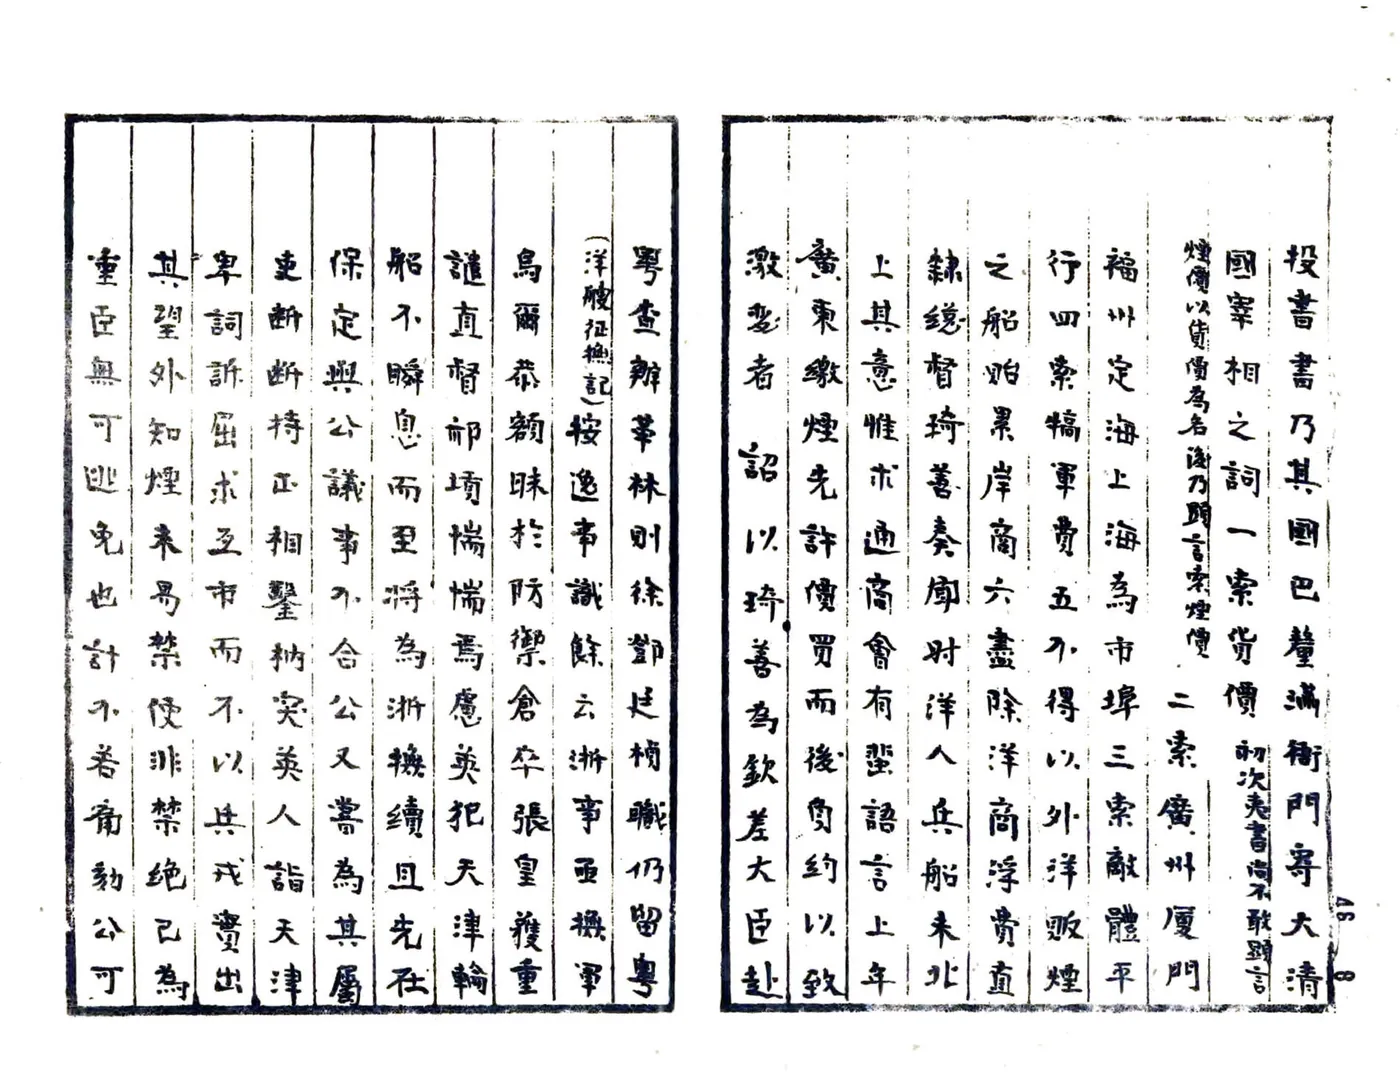 投書書乃其國巴釐滿衙門寄大清
國宰相之詞一索貨價初次夷書尚不敢顯言
煙價以貨價為名後乃顯言索煙價二索廣州廈門
福州定海上海為市埠三索敵體平
行四索犒軍費五不得以外洋販煙
之船貽累岸商六盡除洋商浮費直
隸總督琦善奏聞时洋人兵船未北
上其意惟求通商會有蜚語言上年
廣東繳煙先許價買而後負約以致
激變者 詔以琦善為欽差大臣赴
粵查辦革林則徐鄧廷楨職仍留粵
(洋艘征撫記)按逸事識餘云浙事亟撫軍
烏爾恭額昧於防禦倉卒張皇獲重
譴直督祁𡎴惴惴焉慮英犯天津輪
船不瞬息而至将為浙撫續且先在
保定與公議事不合公又嘗為其屬
吏断断持正相鑿枘突英人詣天津
卑詞訴屈求互市而不以兵戎實出
其望外知煙来易禁使非禁絕已為
重臣無可逃免也計不若痛劾公可